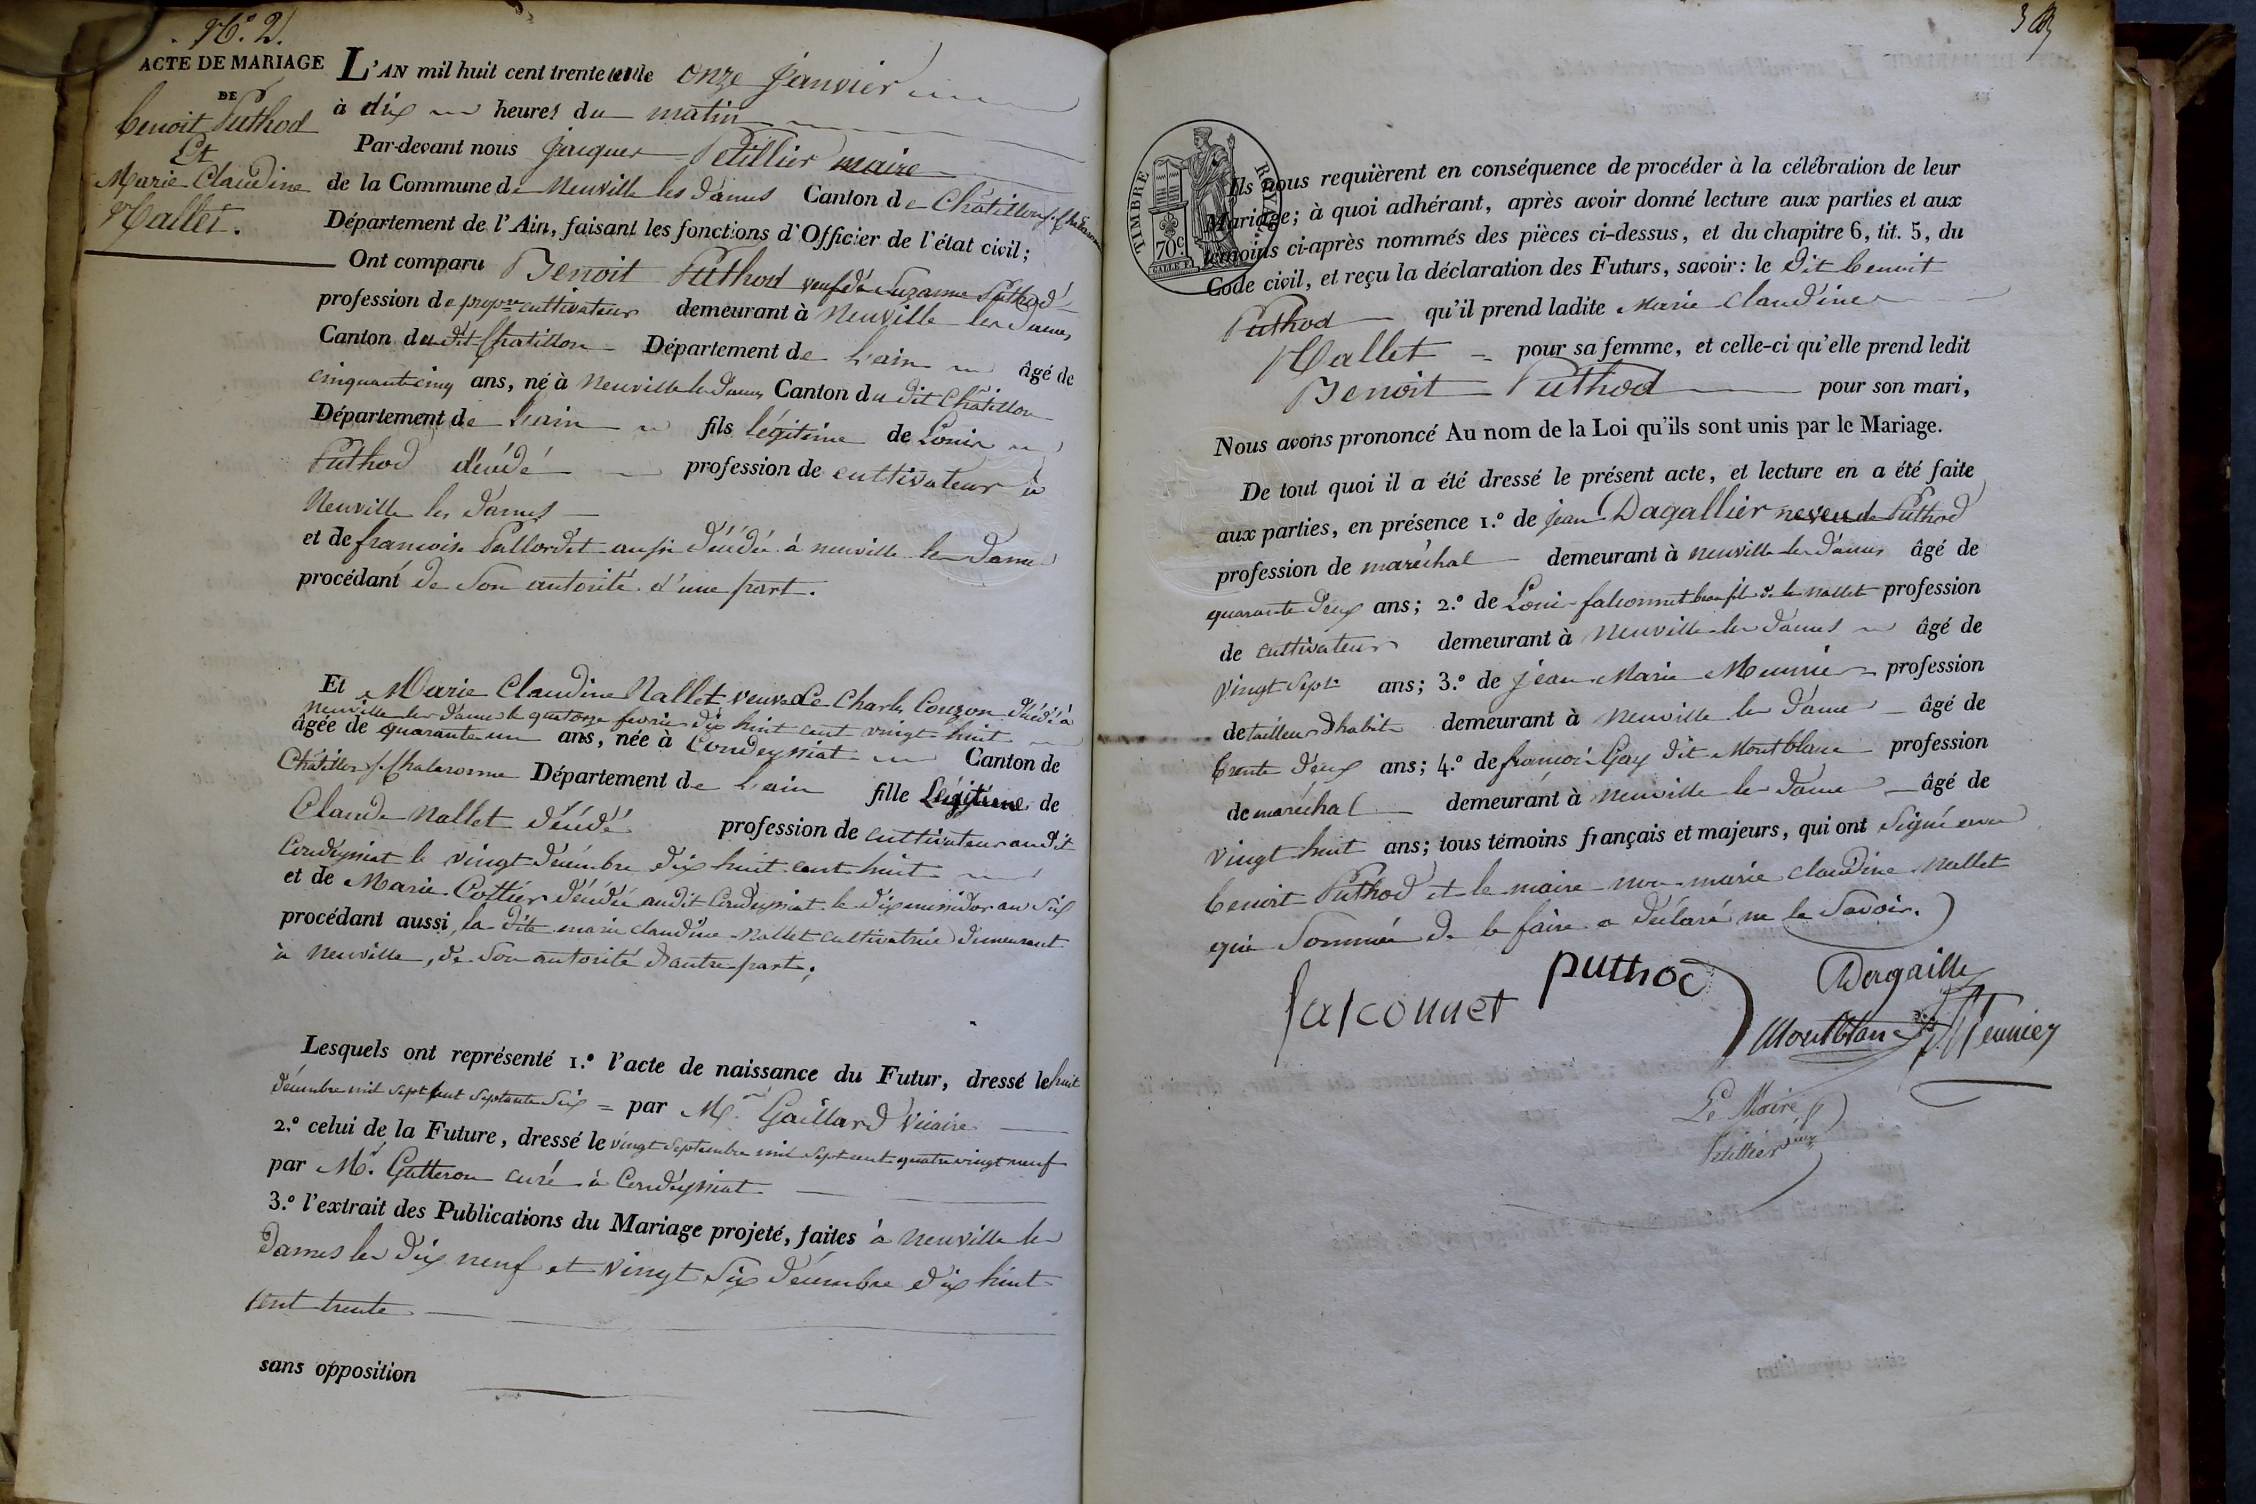 N.° 2.
ACTE DE MARIAGE
DE
benoit Puthod
Et
Marie Claudine
Nallet.
L'AN mil huit cent trente un le onze janvier
à dix heures du matin
Par-devant nous jacques Petillier maire
de la Commune de Neuville les dames Canton de Châtillon s. Chalaronne
Département de l'Ain, faisant les fonctions d'Officier de l'état civil;
Ont comparu Benoit Puthod veuf de Suzanne Puthod
profession de prop.re cultivateur demeurant à Neuville les dames,
Canton du dit Chatillon Département de l'ain âgé de
cinquante cinq ans, né à Neuville les dames Canton du dit Châtillon
Département de l'ain fils légitime de Louis
Puthod décédé profession de cultivateur à
Neuville les dames
et de francoise Pallordet aussi décédée à neuville les dames
procédant de son autorité d'une part.
Et Marie Claudine Nallet veuve de Charles Couzon décédé à
neuville les dames le quatorze fevrier dix huit cent vingt huit
âgée de quarante un ans, née à Condeyssiat Canton de
Châtillon s. Chalaronne Département de l'ain fille Légitime de
Claude Nallet décédé profession de cultivateur au dit
Condeyssiat le vingt décembre dix huit cent huit
et de Marie Cottier décédée audit Condeyssiat le dix messidor an six
procédant aussi, la dite marie claudine Nallet cultivatrice demeurant
à Neuville, de son autorité d'autre part;
Lesquels ont représenté 1.° l'acte de naissance du Futur, dressé le huit
décembre mil sept cent septante six = par M.r Gaillard Vicaire
2.° celui de la Future, dressé le vingt septembre mil sept cent quatre vingt neuf
par M.r Gutteron curé à Condeyssiat
3.° l'extrait des Publications du Mariage projeté, faites à Neuville les
dames les dix neuf et vingt six décembre dix huit
cent trente
sans opposition
3
TIMBRE ROYAL
70 C
Ils nous requièrent en conséquence de procéder à la célébration de leur
Mariage; à quoi adhérant, après avoir donné lecture aux parties et aux
témoins ci-après nommés des pièces ci-dessus, et du chapitre 6, tit. 5, du
Code civil, et reçu la déclaration des Futurs, savoir: le dit benoit
Puthod qu'il prend ladite Marie Claudine
Nallet = pour sa femme, et celle-ci qu'elle prend ledit
Benoit Puthod pour son mari,
Nous avons prononcé Au nom de la Loi qu'ils sont unis par le Mariage.
De tout quoi il a été dressé le présent acte, et lecture en a été faite
aux parties, en présence 1.° de jean Dagallier neveu de Puthod
profession de maréchal demeurant à neuville les dames âgé de
quarante deux ans; 2.° de Louis falconnet beau fils de la Nallet profession
de cultivateur demeurant à Neuville les dames âgé de
vingt sept ans; 3.° de jean Marie Meunier profession
de tailleur d'habits demeurant à Neuville les dames âgé de
trente deux ans; 4.° de françois Gay dit Montblanc profession
de maréchal demeurant à Neuville les dames âgé de
vingt huit ans; tous témoins français et majeurs, qui ont signé avec
benoit Puthod et le maire non marie claudine Nallet
qui sommée de le faire a déclaré ne le savoir.
falconnet puthod
Montblanc Meunier
Le Maire
Petillier